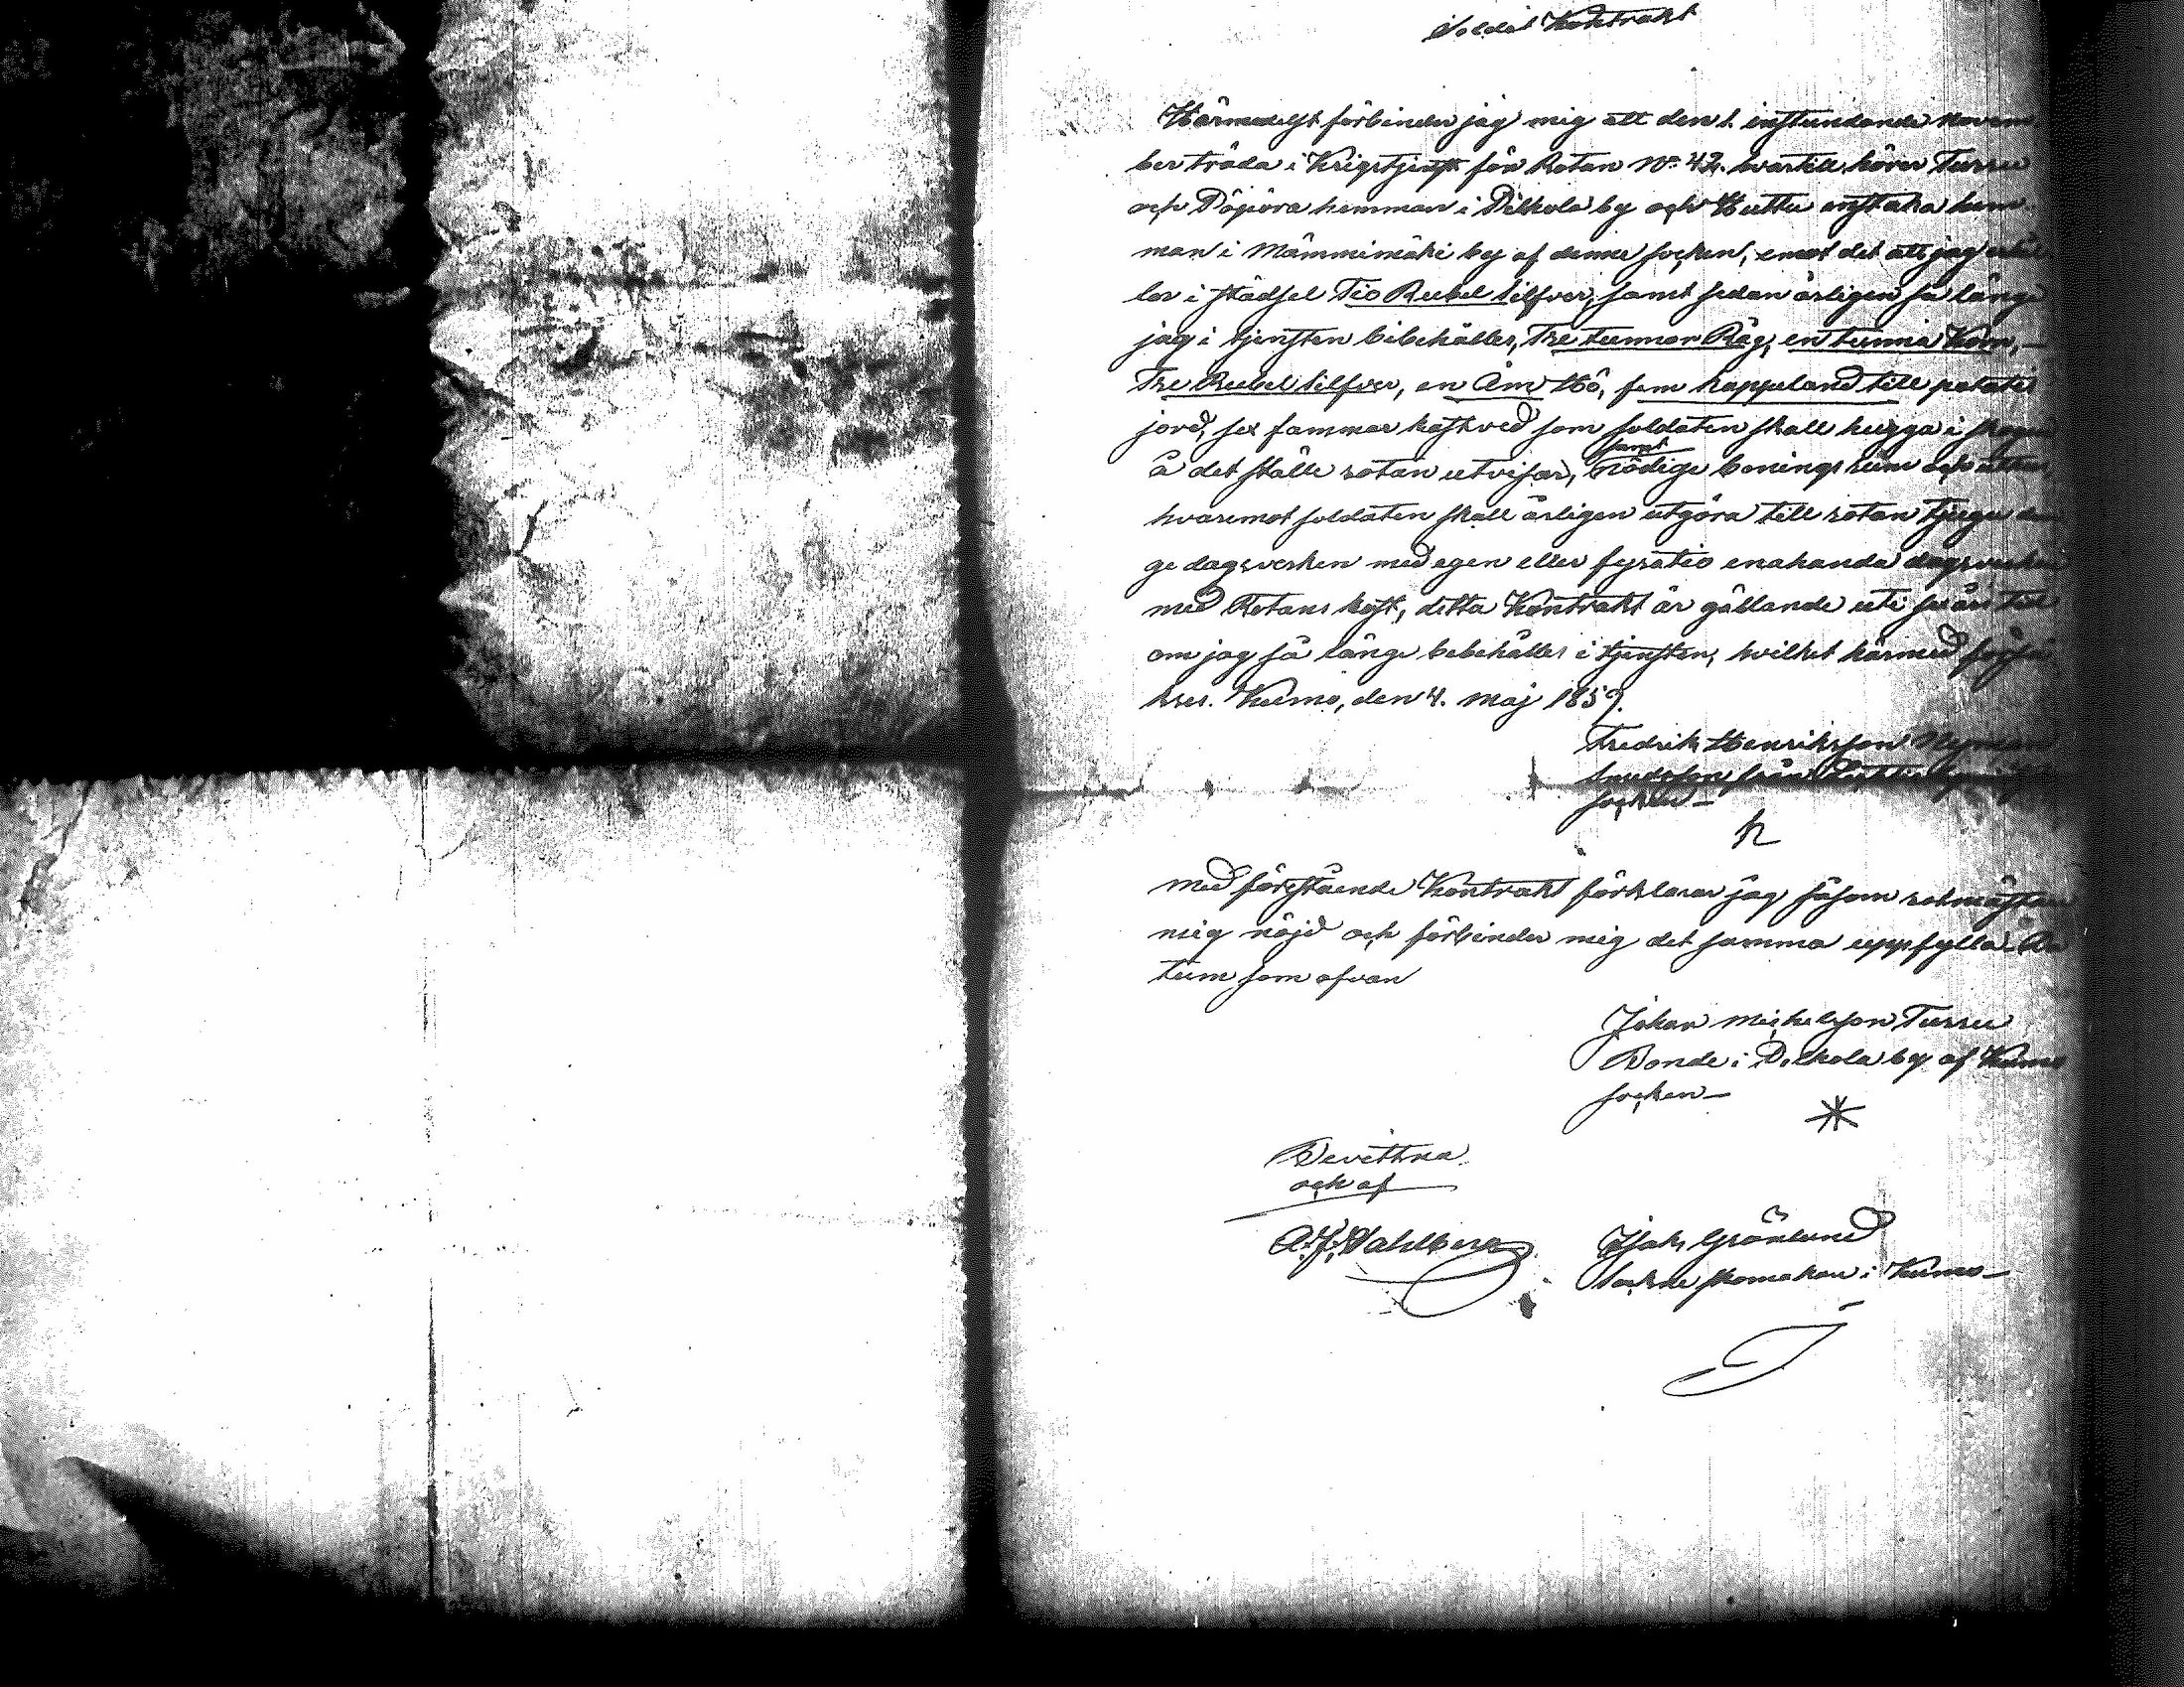 Soldat Kontrakt
Härmedelst förbinder jag mig att den 1. instundande Novem-
ber träda i Krigstjenst för Rotan No. 42. hvartill hörer Turru
och Pöpiöra hemman i Peltola by och Huttu enstaka hem-
man i Mämmimäki by af denne socken, emot det att jag
ler i städsel Tio Rubel silfver, samt sedan årligen så länge
jag i tjensten bibehålles, Tre tunnor Råg, en tunna Korn,
Tre Rubel silfver, en Åm Hö, fem kappeland till potates
jord, sex famnar kastved som soldaten skall hugga i skogen
å det ställe rotan utvisar, samt nödige bonings rum och
hvaremot soldaten skall årligen utgöra till rotan tjugu
ge dagsverken med egen eller fyratio enahanda dagsverken
med Rotans kost, detta Kontrakt är gällande uti sex års tid
om jag så länge bebehålles i tjensten, hvilket härmed försä-
kras. Kumo, den 4. Maj 1859.
Fredrik Henriksson
från
socken
Med förestående Kontrakt förklarar jag såsom rotmästare
mig nöjd och förbinder mig det samma uppfylla. Da
tum som ofvan
Johan Michelsson Turru
Bonde i Peltola by af Kumo
socken
Bevittna
och af
A. J. Wahlberg
Isak Grönlund
Sockne skomakare i Kumo